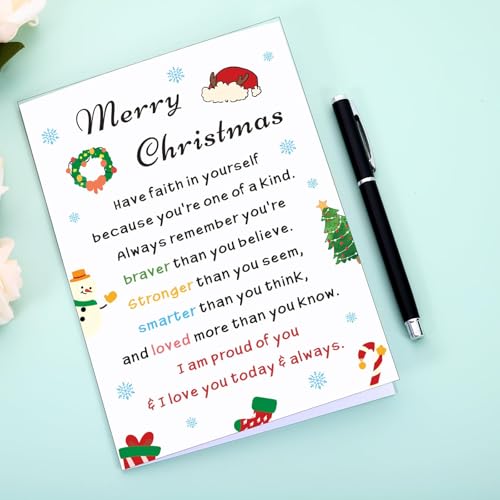 Merry
Christmas
Have faith in yourself
because you're one of a kind.
Always remember you're
braver than you believe.
Stronger than you seem,
smarter than you think,
and loved more than you know.
I am proud of you
& I love you today & always.